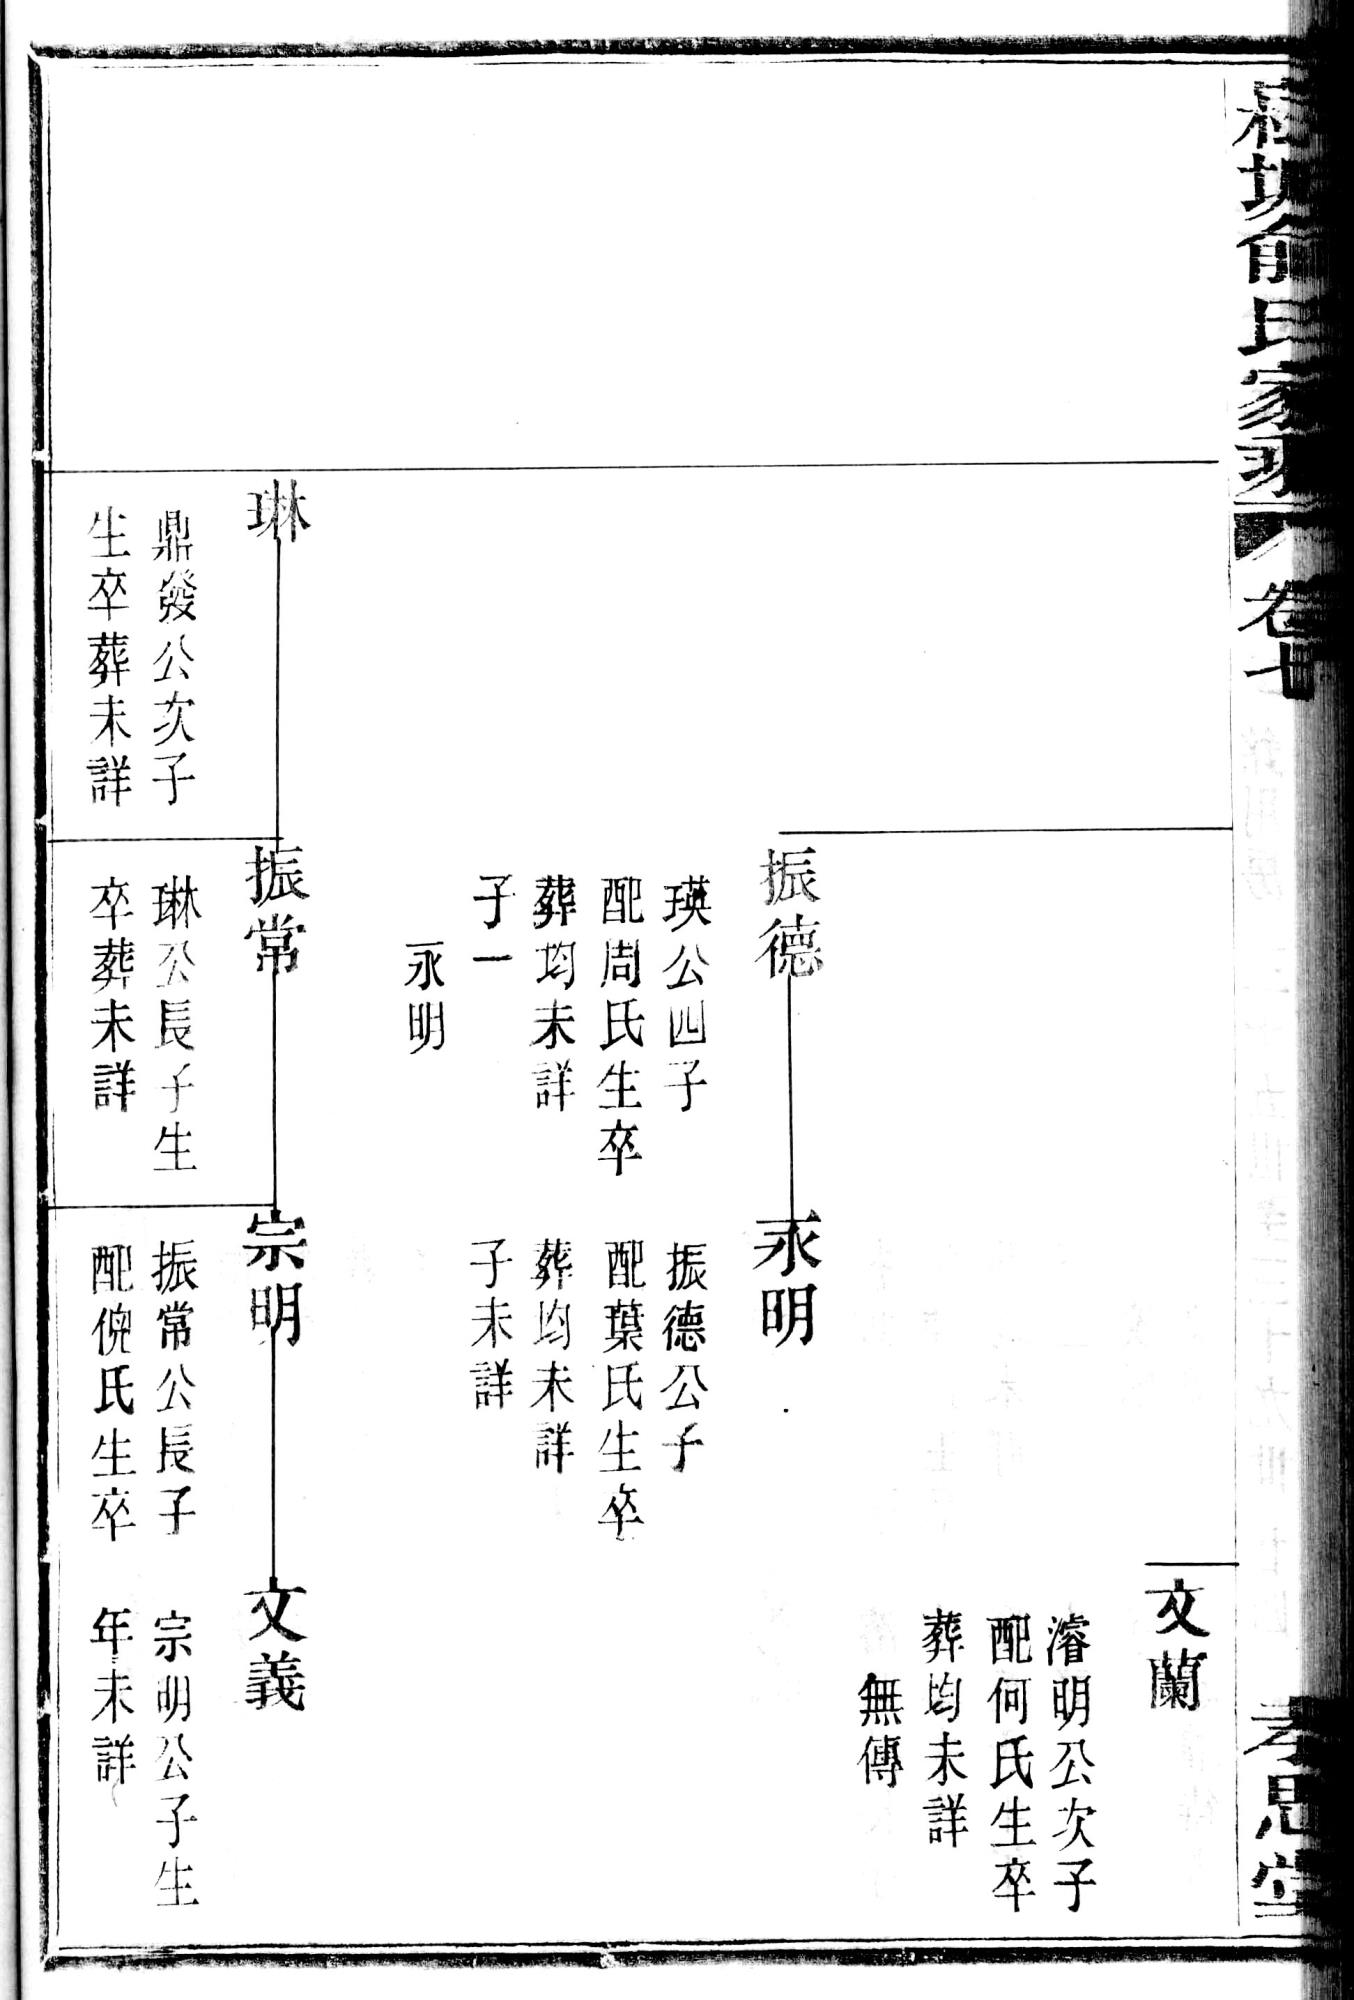 俞氏家乘
卷七
孝思堂
文蘭
濬明公次子
配何氏生卒
葬均未詳
無傳
振德
瑛公四子
配周氏生卒
葬均未詳
子一
永明
永明
振德公子
配葉氏生卒
葬均未詳
子未詳
琳
鼎發公次子
生卒葬未詳
振常
琳公長子生
卒葬未詳
宗明
振常公長子
配倪氏生卒
文義
宗明公子生
年未詳